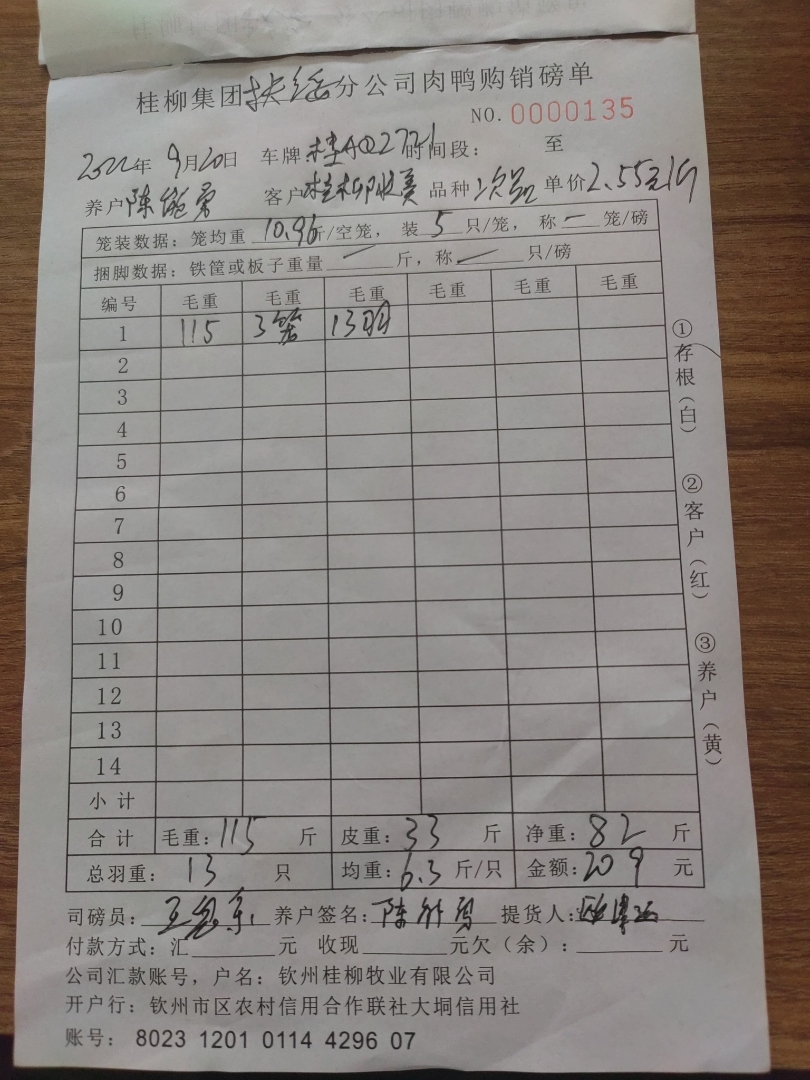 桂柳集团扶绥分公司肉鸭购销磅单
NO. 0000135
2022年 9月20日 车牌 桂A 时间段: 至
养户 陈能勇 客户 桂柳收 品种 次品 单价 2.55元/斤
笼装数据: 笼均重 10.96 斤/空笼, 装 5 只/笼, 称 — 笼/磅
捆脚数据: 铁筐或板子重量 — 斤, 称 — 只/磅
编号 毛重 毛重 毛重 毛重 毛重 毛重
1 115 3笼 13羽
2
3
4
5
6
7
8
9
10
11
12
13
14
小计
合计 毛重: 115 斤 皮重: 33 斤 净重: 82 斤
总羽重: 13 只 均重: 6.3 斤/只 金额: 209 元
司磅员: 养户签名: 陈能勇 提货人:
付款方式: 汇 元 收现 元欠(余): 元
公司汇款账号, 户名: 钦州桂柳牧业有限公司
开户行: 钦州市区农村信用合作联社大垌信用社
账号: 8023 1201 0114 4296 07
①存根(白)
②客户(红)
③养户(黄)